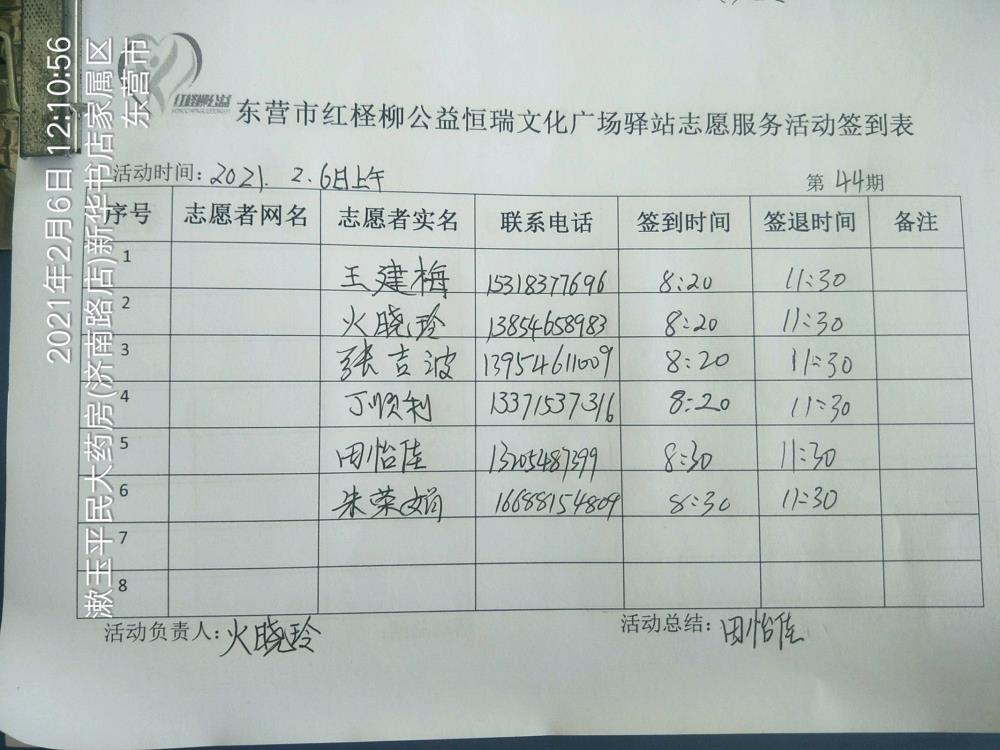 2021年2月6日 12:10:56
漱玉平民大药房(济南路店)新华书店家属区
东营市
红柽柳公益
东营市红柽柳公益恒瑞文化广场驿站志愿服务活动签到表
活动时间：2021. 2. 6日上午 第 44期
序号 志愿者网名 志愿者实名 联系电话 签到时间 签退时间 备注
1 王建梅 15318377696 8:20 11:30
2 火晓玲 13854658983 8:20 11:30
3 张吉波 13954611009 8:20 11:30
4 丁顺利 13371537316 8:20 11:30
5 田怡佳 13205487399 8:30 11:30
6 朱荣娟 16688154809 8:30 11:30
7
8
活动负责人：火晓玲 活动总结：田怡佳